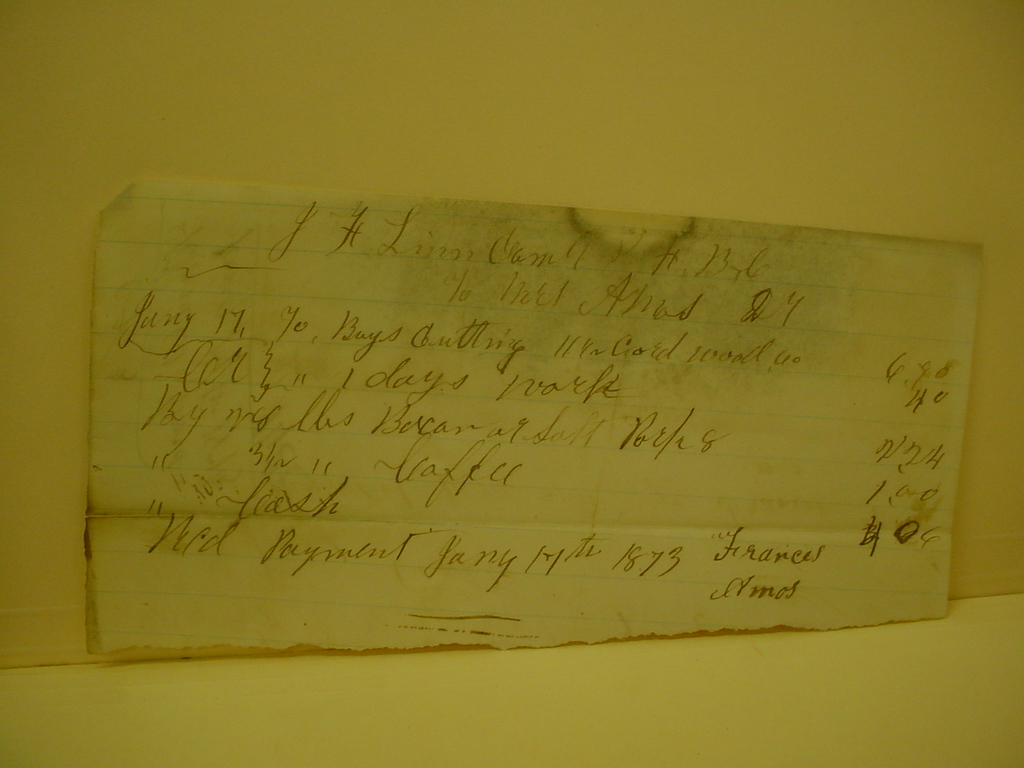 J F Linn Com
To Mrs Amos Dr
Jany 17, To, Boys Cutting 11 1/2 Cord wood 60 6.90
" 1 days work 40
By 28 lbs Bacon or Salt Pork 8 2 24
" 3 1/2 " Coffee 1.00
" Cash 4 06
Recd Payment Jany 17th 1873 Frances
Amos